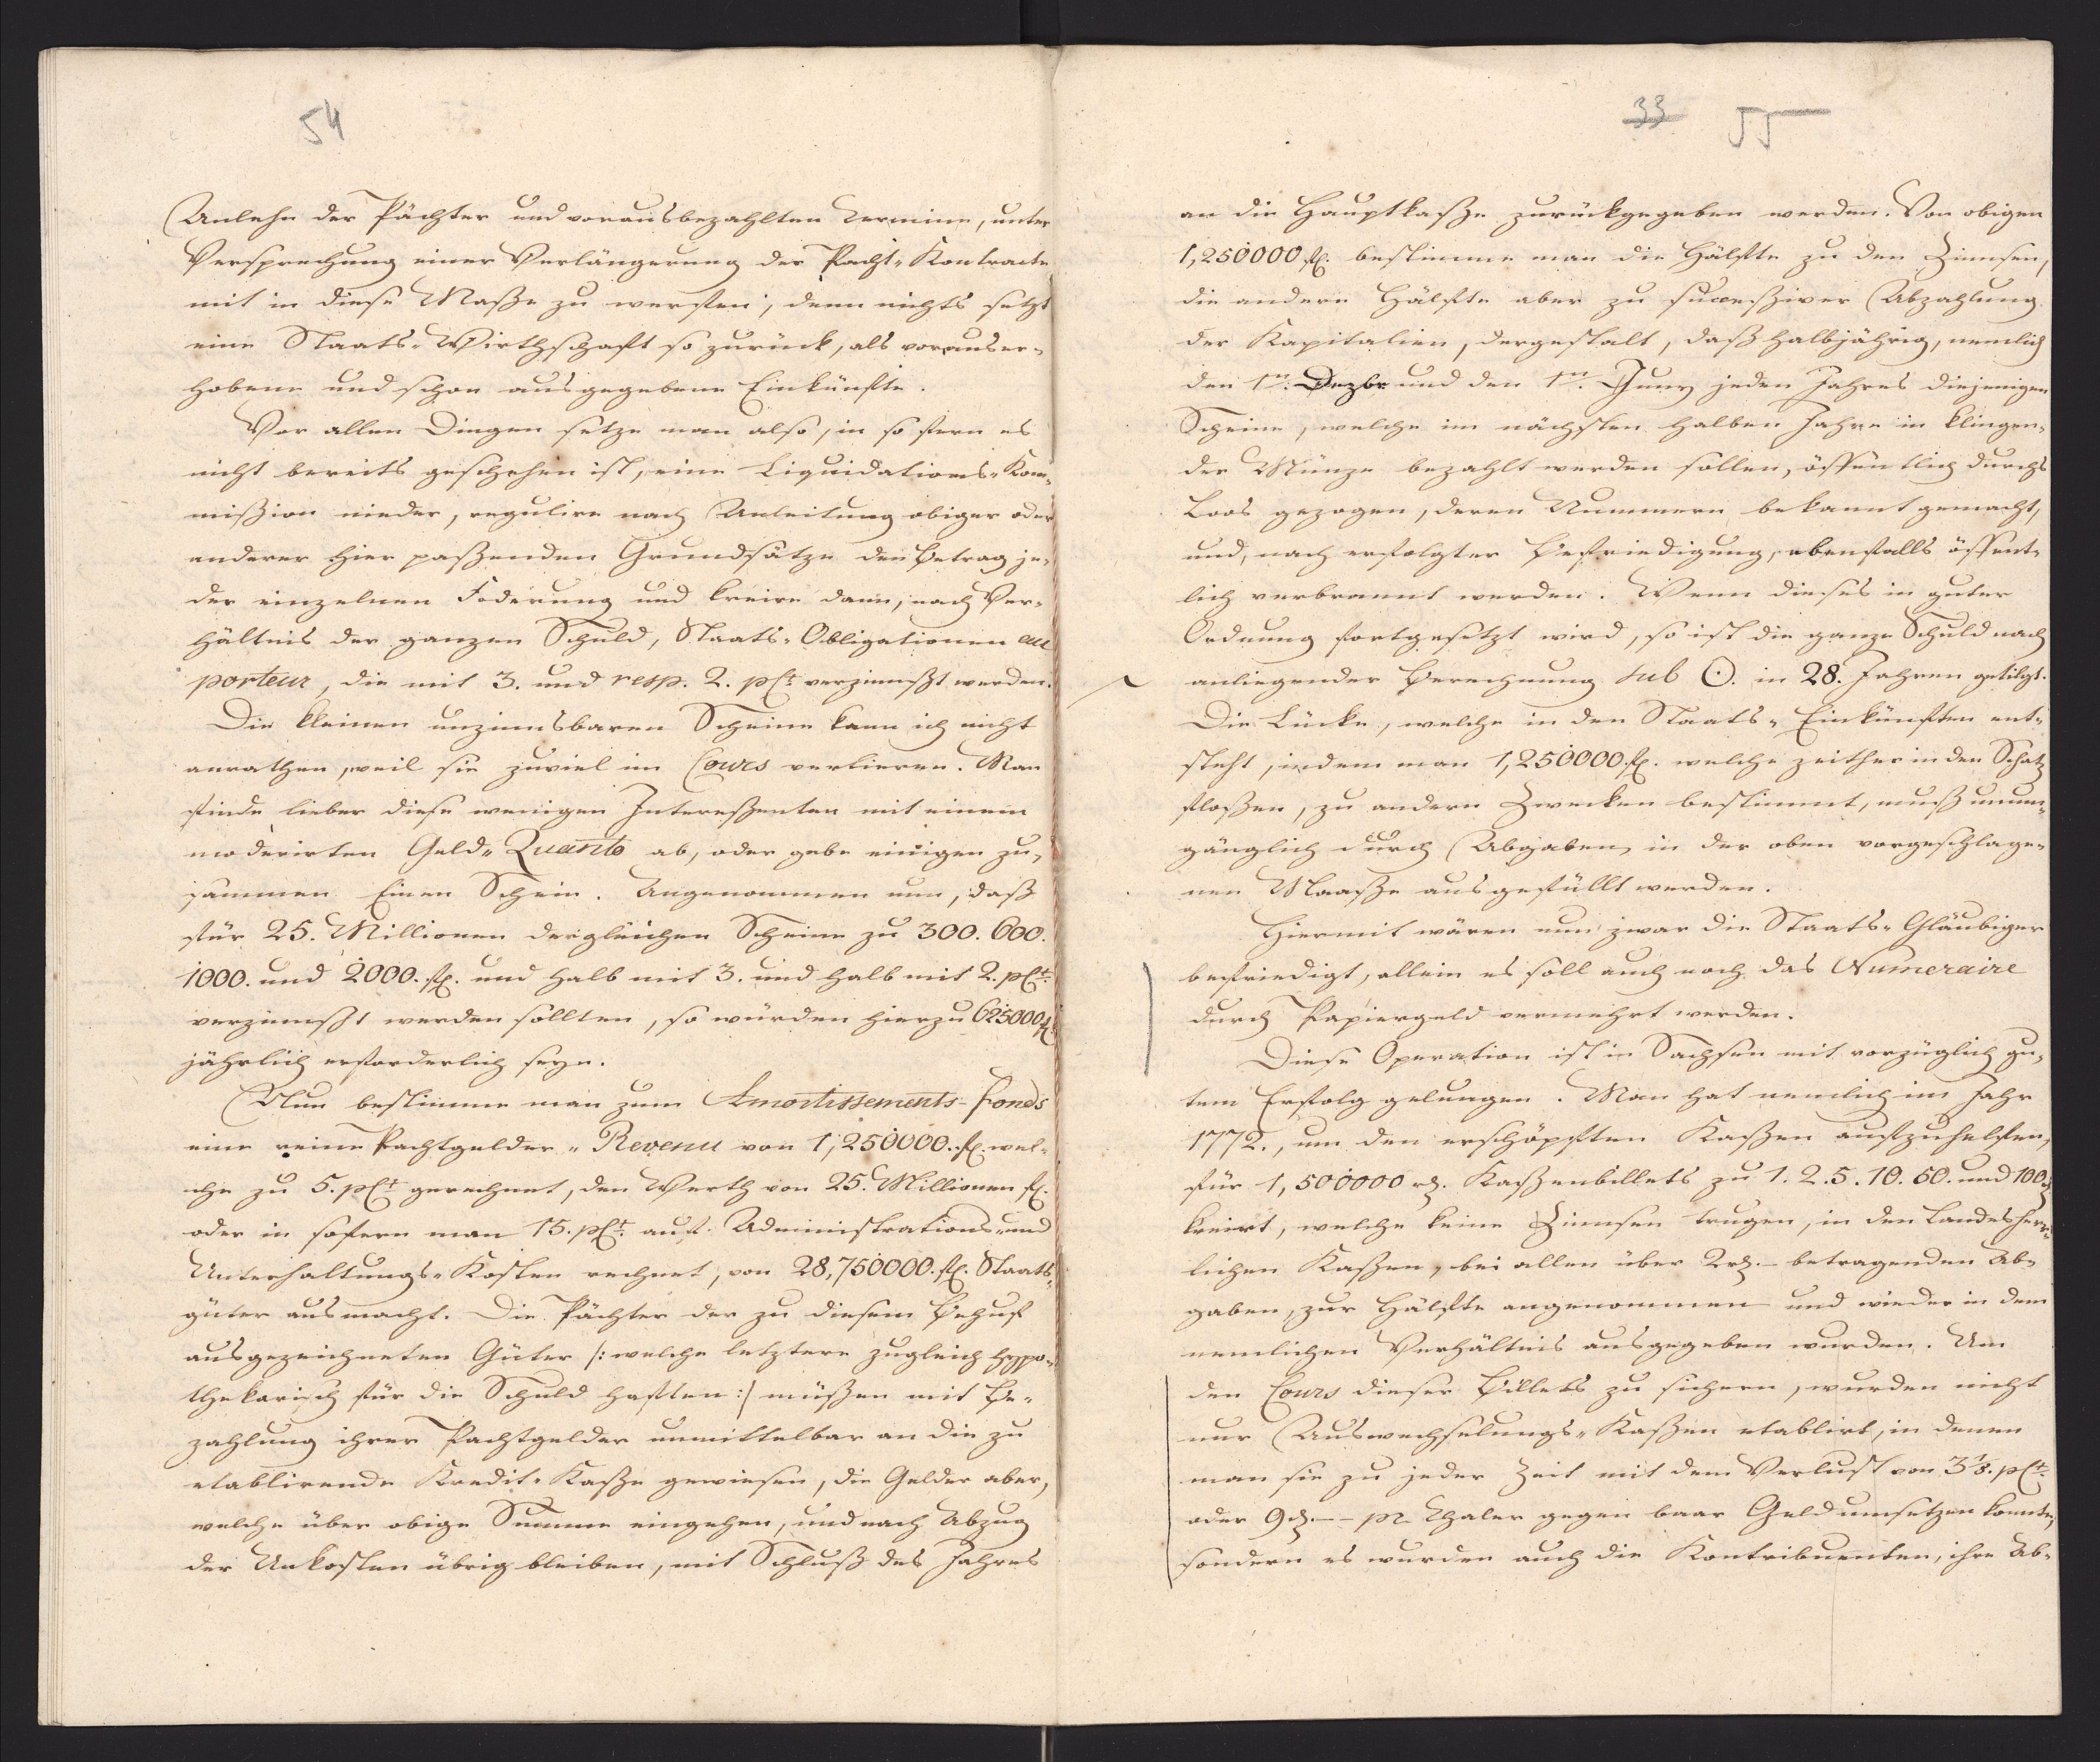 54
Anlehn der Pächter und vorausbezahlten Termine, unter
Versprechung einer Verlängerung der Pacht-Kontracte
mit in diese Maße zu werfen; denn nichts setzt
eine Staats-Wirthschaft so zurück, als voraus er-
hobene und schon ausgegebene Einkünfte.
Vor allen Dingen setze man also, in so fern es
nicht bereits geschehen ist, eine Liquidations-Kom-
mißion nieder, regulire nach Anleitung obiger oder
anderer hier paßenden Grundsätze den Betrag je-
der einzelnen Foderung und kreire dann, nach Ver-
hältnis der ganzen Schuld, Staats-Obligationen au
porteur, die mit 3. und resp. 2. pCt. verzinnßt werden.
Die kleinen unzinnsbaren Scheine kann ich nicht
anrathen, weil sie zuviel im Cours verlieren. Man
finde lieber diese wenigen Intereßenten mit einem
moderirten Geld-Quanto ab, oder gebe einigen zu-
sammen Einen Schein. Angenommen nun, daß
für 25. Millionen dergleichen Scheine zu 300. 600.
1000. und 2000. fl. und halb mit 3. und halb mit 2. pCt.
verzinnßt werden sollten, so würden hierzu 625000 fl.
jährlich erforderlich seyn.
Nun bestimme man zum Amortissements-Fonds
eine reine Pachtgelder-Revenu von 1,250000. fl. wel-
che zu 5. pCt. gerechnet, den Werth von 25. Millionen fl.
oder in sofern man 15. pCt. auf Administrations- und
Unterhaltungs-Kosten rechnet, von 28,750000. fl. Staats-
güter ausmacht. Die Pächter der zu diesem Behuf
ausgezeichneten Güter /: welche letztere zugleich hypo-
thekarisch für die Schuld haften :/ müßen mit Be-
zahlung ihrer Pachtgelder unmittelbar an die zu
etablirende Kredit-Kaße gewiesen, die Gelder aber,
welche über obige Summe eingehen, und nach Abzug
der Unkosten übrig bleiben, mit Schluß des Jahres
33 55
an die Hauptkaße zurückgegeben werden. Von obigen
1,250000 fl. bestimme man die Hälfte zu den Zinnsen,
die andere Hälfte aber zu succeßiver Abzahlung
der Kapitalien, dergestalt, daß halbjährig, nemlich
den 1n. Dezbr und den 1n. Juny jeden Jahres diejenigen
Scheine, welche im nächsten halben Jahre in klingen-
der Münze bezahlt werden sollen, öffentlich durchs
Loos gezogen, deren Nummern bekannt gemacht,
und, nach erfolgter Befriedigung, ebenfalls öffent-
lich verbrannt werden. Wenn dieses in guter
Ordnung fortgesetzt wird, so ist die ganze Schuld nach
anliegender Berechnung sub ☉. in 28. Jahren getilgt.
Die Lücke, welche in den Staats-Einkünften ent-
steht, indem man 1,250000. fl. welche zeither in den Schatz
floßen, zu andern Zwecken bestimmt, muß unum-
gänglich durch Abgaben, in der oben vorgeschlage-
nen Maaße ausgefüllt werden.
Hiermit wären nun zwar die Staats-Gläubiger
befriedigt, allein es soll auch noch das Numeraire
durch Papiergeld vermehrt werden.
Diese Operation ist in Sachsen mit vorzüglich gu-
tem Erfolg gelungen. Man hat nemlich im Jahr
1772., um den erschöpften Kaßen aufzuhelfen,
für 1,500000 rh. Kaßenbillets zu 1. 2. 5. 10. 50. und 100 rh
kreirt, welche keine Zinnsen trugen, in den Landesherr-
lichen Kaßen, bei allen über 2 rh. – betragenden Ab-
gaben, zur Hälfte angenommen und wieder in dem
nemlichen Verhältnis ausgegeben wurden. Um
den Cours dieser Billets zu sichern, wurden nicht
nur Auswechselungs-Kaßen etablirt, in denen
man sie zu jeder Zeit mit dem Verlust von 3⅛. pCt.
oder 9 d. – pr Thaler gegen baar Geld umsetzen konnte,
sondern es wurden auch die Kontribuenten, ihre Ab-